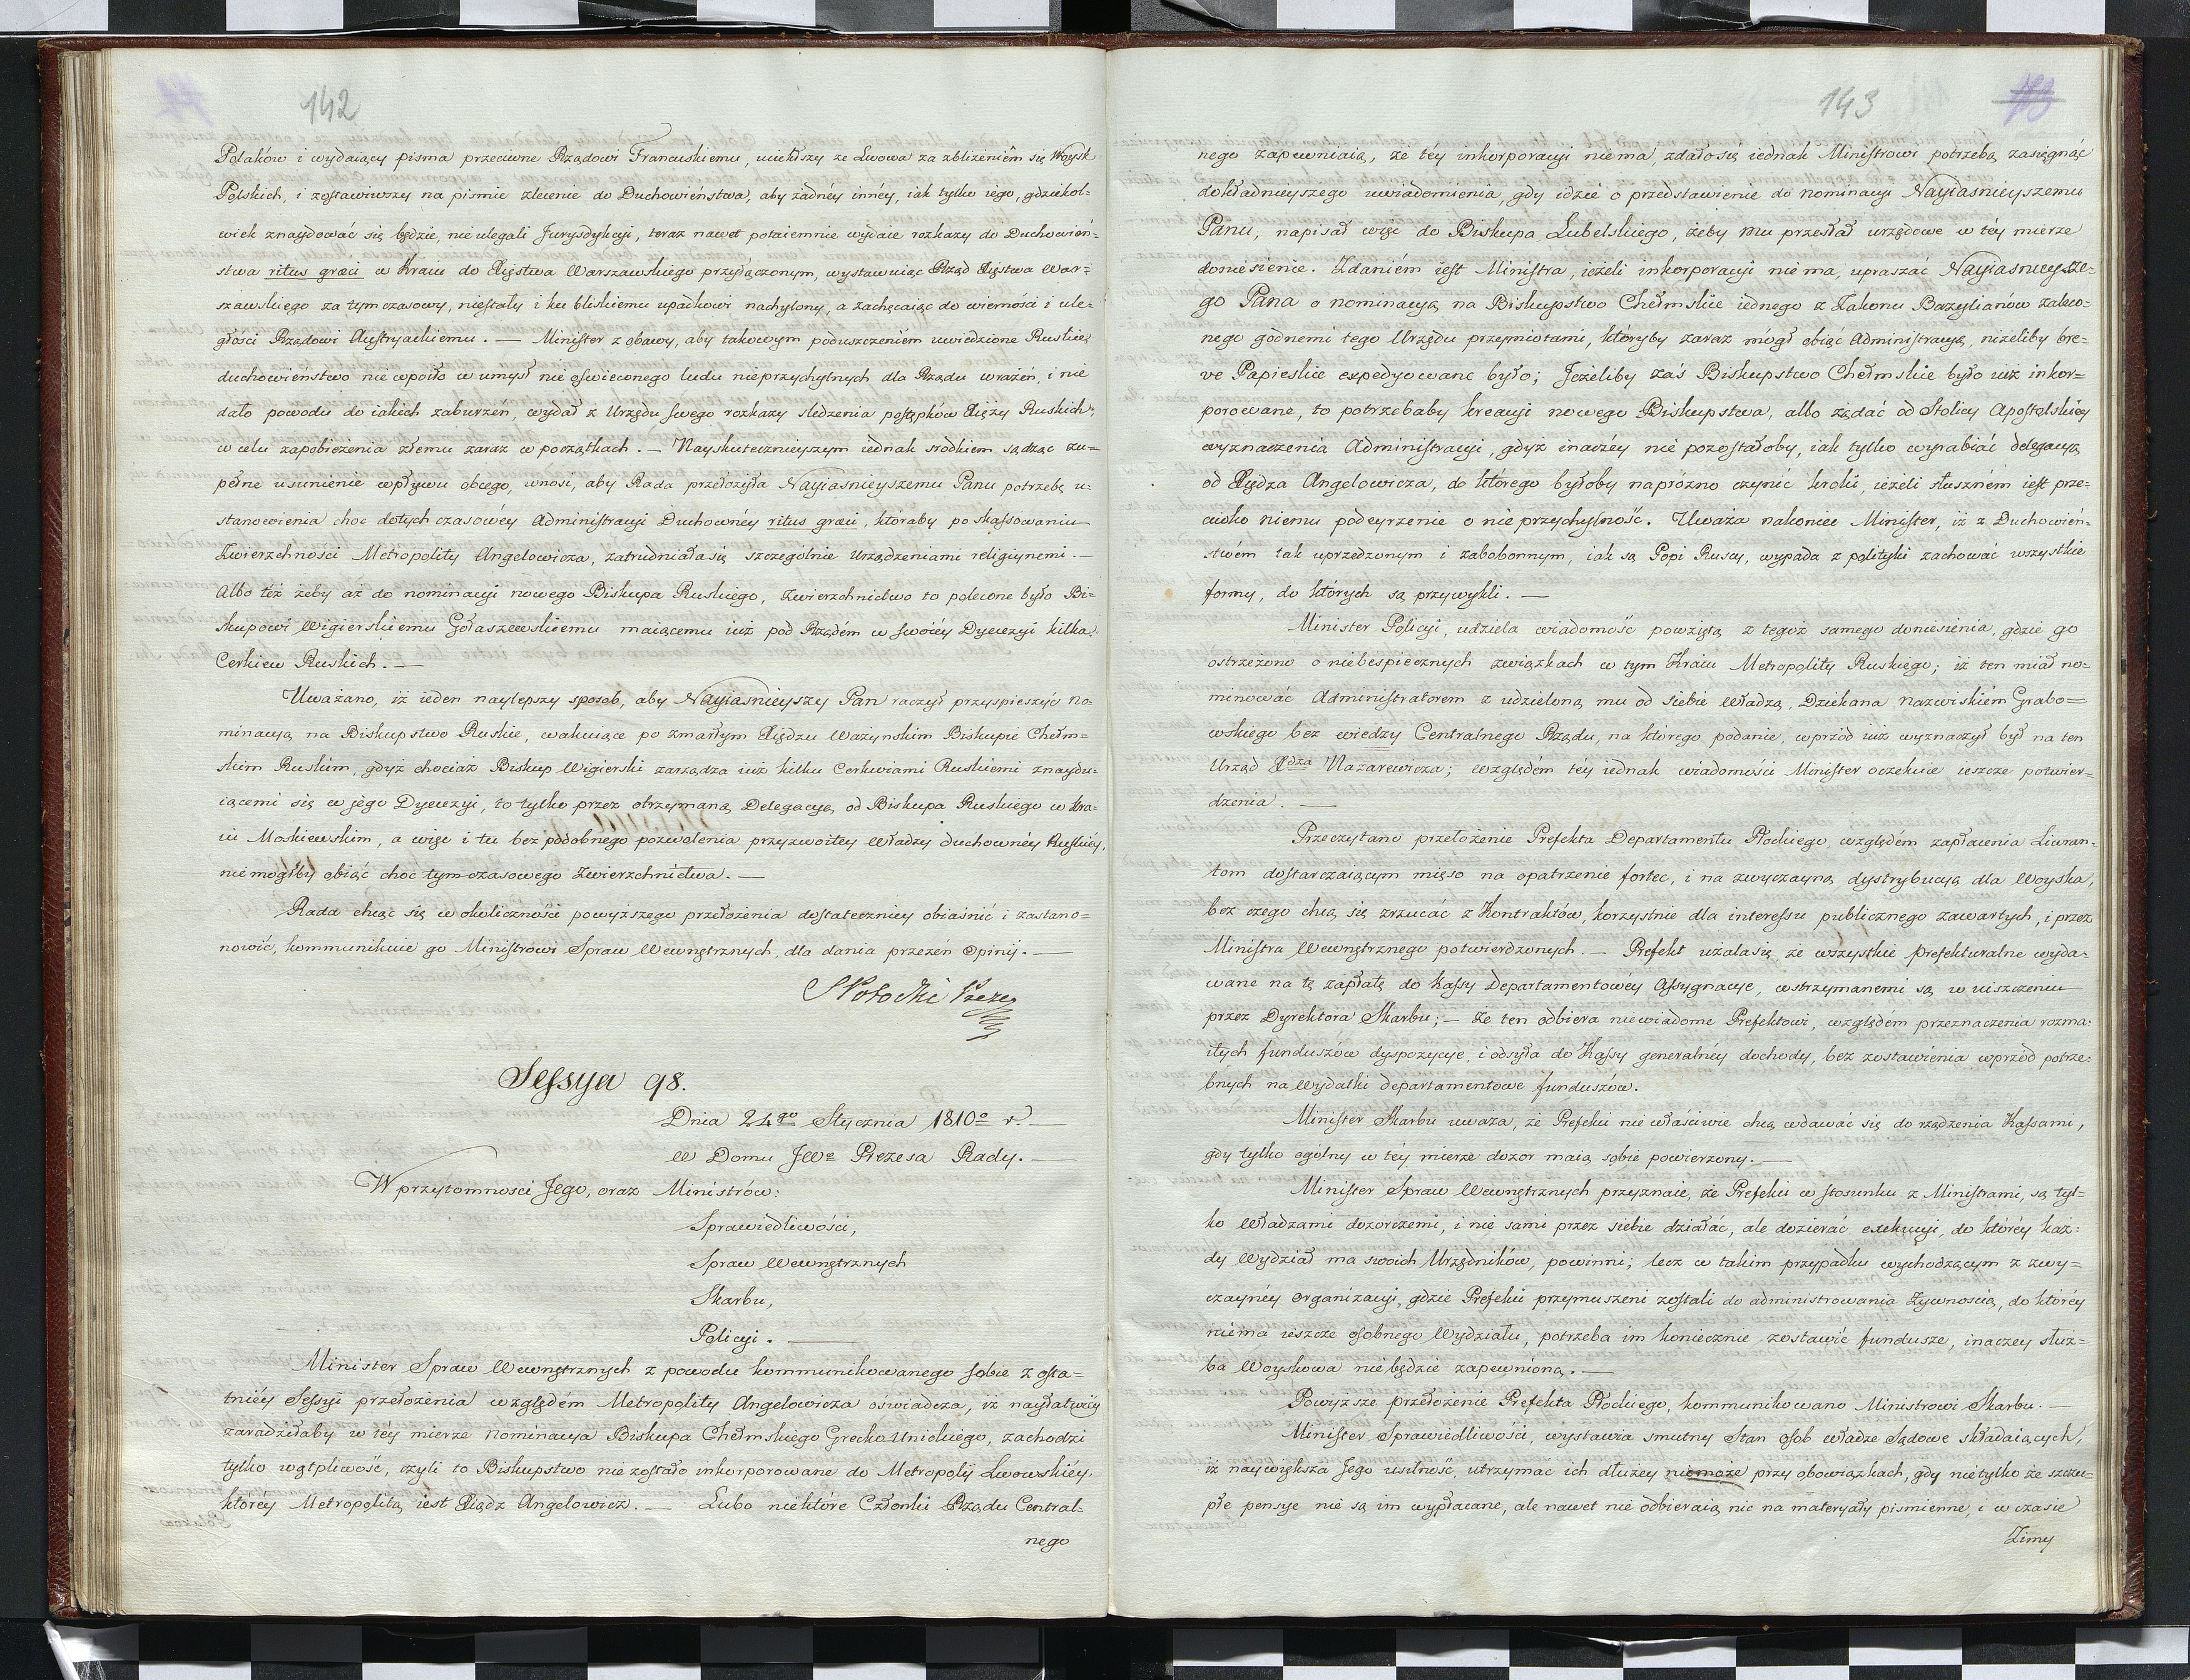 142
Polaków i wydaiący pisma przeciwne Rządowi Francuskiemu, uciekłszy ze Lwowa za zbliżeniem się Woysk
Polskich, i zostawiwszy na pismie zlecenie do Duchowieństwa, aby żadnéy innéy, iak tylko iego, gdziekol=
wiek znaydować się będzie, nie ulegali Jurysdykcyi, teraz nawet potaiemnie wydaie rozkazy do Duchowień=
stwa ritus graeci w Kraiu do Xięstwa Warszawskiego przyłączonym, wystawuiąc Rząd Xięstwa War=
szawskiego za tymczasowy, niestały i ku bliskiemu upadkowi nachylony, a zachęcaiąc do wierności i ule=
głości Rządowi Austryackiemu. — Minister z obawy, aby takowym poduszczeniém uwiedzione Ruskie
duchowieństwo nie wpoiło w umysł nie oświeconego ludu nieprzychylnych dla Rządu wrażeń, i nie
dało powodu do iakich zaburzeń, wydał z Urzędu swego rozkazy śledzenia postępków Xięży Ruskich,
w celu zapobieżenia złemu zaraz w początkach. — Nayskutecznieyszym iednak srodkiem sądząc zu=
pełne usunienie wpływu obcego, wnosi, aby Rada przełożyła Nayiasnieyszemu Panu potrzebę u=
stanowienia choc dotychczasowéy Administracyi Duchownéy ritus graeci, któraby po skassowaniu
Zwierzchności Metropolity Angelowicza, zatrudniała się szczególnie Urządzeniami religiynemi. —
Albo téż żeby aż do nominacyi nowego Biskupa Ruskiego, Zwierzchnictwo to polecone było Bi=
skupowi Wigierskiemu Gołaszewskiemu maiącemu iuż pod Rządém w swoiéy Dyecezyi kilka
Cerkiew Ruskich. —
Uważano, iż ieden naylepszy sposob, aby Nayiasnieyszy Pan raczył przyspieszyć no=
minacyą na Biskupstwo Ruskie, wakuiące po zmarłym Xiędzu Ważynskim Biskupie Chełm=
skim Ruskim, gdyż chociaż Biskup Wigierski zarządza iuż kilku Cerkwiami Ruskiemi znaydu=
iącemi się w jego Dyecezyi, to tylko przez otrzymaną Delegacyą od Biskupa Ruskiego w Kra=
iu Moskiewskim, a więc i tu bez podobnego pozwolenia przyzwoitey Władzy duchownéy Ruskiéy,
nie mogłby obiąć choc tymczasowego Zwierzchnictwa. —
Rada chcąc się w okoliczności powyższego przełożenia dostateczniey obiaśnić i zastano=
nowić, kommunikuie go Ministrowi Spraw Wewnętrznych, dla dania przezeń Opinij. —
S Potocki Prezes
Sessya 98.
Dnia 24go Stycznia 1810o r. —
w Domu JWo Prezesa Rady. —
W przytomnosci Jego, oraz Ministrów:
Sprawiedliwości,
Spraw Wewnętrznych
Skarbu,
Policyi. —
Minister Spraw Wewnętrznych z powodu kommunikowanego sobie z osta=
tniéy Sessyi przełożenia względém Metropolity Angelowicza oświadcza, iż nayłatwiéy
zaradziłaby w téy mierze Nominacya Biskupa Chełmskiego Grecko Unickiego, zachodzi
tylko wątpliwość, czyli to Biskupstwo nie zostało inkorporowane do Metropolij Lwowskiéy,
któréy Metropolitą iest Xiądz Angelowicz. — Lubo niektóre Członki Rządu Central-
nego
143
nego zapewniaią, że téy inkorporacyi niema, zdało się iednak Ministrowi potrzebą zasięgnąć
dokładnieyszego uwiadomienia, gdy idzie o przedstawienie do Nominacyi Nayiasnieyszemu
Panu, napisał więc do Biskupa Lubelskiego, żeby mu przesłał urzędowe w téy mierze
doniesienie. Zdaniém iest Ministra, ieżeli inkorporacyi niema, upraszać Nayiasnieysze=
go Pana o nominacyą na Biskupstwo Chełmskie iednego z Zakonu Bazylianów zaleco=
nego godnemi tego Urzędu przymiotami, któryby zaraz mógł obiąć Administracyą, niżeliby bre=
ve Papieskie expedyowane było; Jeżeliby zaś Biskupstwo Chełmskie było iuż inkor=
porowane, to potrzebaby kreacyi nowego Biskupstwa, albo żądać od Stolicy Apostolskiéy
wyznaczenia Administracyi, gdyż inaczéy nie pozostałoby, iak tylko wyrabiać delegacyą
od Xiędza Angelowicza, do którego byłoby napróżno czynić kroki, ieżeli słuszném iest prze=
ciwko niemu podeyrzenie o nieprzychylność. Uważa nakoniec Minister, iż z Duchowień=
stwém tak uprzedzonym i zabobonnym, iak są Popi Ruscy, wypada z polityki zachować wszystkie
formy, do których są przywykli. —
Minister Policyi, udziela wiadomość powziętą z tegoż samego doniesienia, gdzie go
ostrzeżono o niebespiecznych związkach w tym Kraiu Metropolity Ruskiego; iż ten miał no=
minować Administratorem z udzieloną mu od siebie Władzą, Dziekana Nazwiskiém Grabo=
wskiego bez wiedzy Centralnego Rządu, na którego podanie, wprzód iuż wyznaczył był na ten
Urząd Xdza Nazarewicza; względém téy iednak wiadomości Minister oczekuie ieszcze potwier=
dzenia. —
Przeczytano przełożenie Prefekta Departamentu Płockiego, względém zapłacenia Liwran=
tom dostarczaiącym mięso na opatrzenie fortec, i na zwyczayną dystrybucyą dla Woyska,
bez czego chcą się zrzucać z Kontraktów, korzystnie dla interessu publicznego zawartych, i przez
Ministra Wewnętrznego potwierdzonych. — Prefekt użala się, ze wszystkie prefekturalne wyda=
wane na tę zapłatę do Kassy Departamentowéy Assygnacye, wstrzymanemi są w uiszczeniu
przez Dyrektora Skarbu; — że ten odbiera niewiadome Prefektowi, względém przeznaczenia rozma=
itych funduszów dyspozycye, i odsyła do Kassy generalnéy dochody, bez zostawienia wprzód potrze=
bnych na Wydatki departamentowe funduszów.
Minister Skarbu uważa, że Prefekci nie właściwie chcą wdawać się do rządzenia Kassami,
gdy tylko ogólny w téy mierze dozor maią sobie powierzony. —
Minister Spraw Wewnętrznych przyznaie, że Prefekci w stosunku z Ministrami, są tyl=
ko Władzami dozorczemi, i nie sami przez siebie działać, ale dozierać exekucyi, do któréy każ=
dy Wydział ma swoich Urzędników, powinni; lecz w takim przypadku wychodzącym z zwy=
czaynéy Organizacyi, gdzie Prefekci przymuszeni zostali do administrowania Zywnością, do któréy
niéma ieszcze osobnego Wydziału, potrzeba im koniecznie zostawić fundusze, inaczey służ=
ba Woyskowa nie będzie zapewnioną. —
Powyższe przełożenie Prefekta Płockiego, kommunikowano Ministrowi Skarbu. —
Minister Sprawiedliwości, wystawia smutny Stan osob władze Sądowe składaiących,
iż naywiększa Jego usilność, utrzymać ich dłużey niemoże przy obowiązkach, gdy nietylko że szczu=
płe pensye nie są im wypłacane, ale nawet nie odbieraią nic na materyały pismienne, i w czasie
Zimy